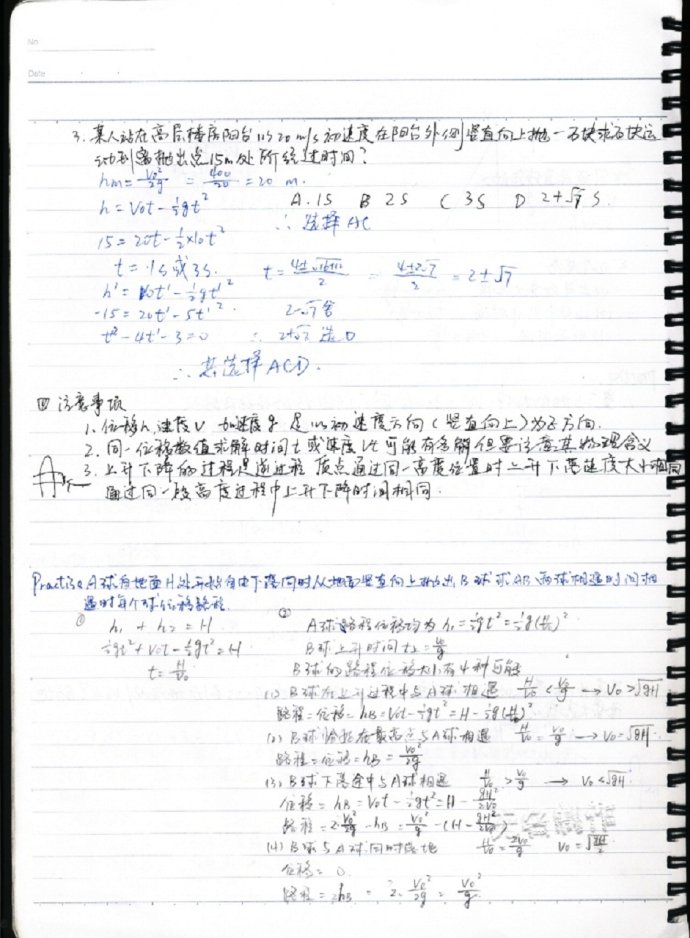 No
Date
3. 某人站在高层楼房阳台以20 m/s 初速度在阳台外侧竖直向上抛一石块求石块运
动到离抛出点15m处所经过时间?
hm = V0²/2g = 400/20 = 20 m.
h = V0t - ½gt²
A. 1S B 2S C 3S D 2+√7 S
∴ 选择 AC
15 = 20t - ½×10t²
t = 1s或3s.
t = = (4±2√7)/2 = 2±√7
-15 = 20t' - 5t'²
2-√7舍
t'² - 4t' - 3 = 0 ∴ 2+√7 选D
∴ 选择ACD.
四 注意事项
1. 位移h, 速度V 加速度g 是以初速度方向(竖直向上)为正方向.
2. 同一位移数值求解时间t或速度Vt可能有多解但要注意其物理含义
3. 上升下降的过程 通过同一高度位置时上升下落速度大小相同
通过同一段高度过程中上升下降时间相同.
Practise A球自地面H处开始自由下落同时从地面竖直向上抛出B球求AB两球相遇时间相
遇时每个球位移路程.
①
h1 + h2 = H
½gt² + V0t - ½gt² = H
t = H/V0
②
A球路程位移均为 h1 = ½gt² = ½g(H/V0)²
B球上升时间 t2 = V0/g
B球的路程位移大小有4种可能
(1) B球在上升过程中与A球相遇 H/V0 < V0/g → V0 > √gH
路程=位移= hB = V0t - ½gt² = H - ½g(H/V0)²
(2) B球恰好在最高点与A球相遇 H/V0 = V0/g → V0 = √gH
路程=位移= hB = V0²/2g
(3) B球下落途中与A球相遇 H/V0 > V0/g → V0 < √gH
位移= hB = V0t - ½gt² = H - gH²/2V0²
路程= 2·V0²/2g - hB = V0²/g - (H - gH²/2V0²)
(4) B球与A球同时落地 H/V0 = 2V0/g V0 = √(gH/2)
位移= 0
路程= 2hB = 2·V0²/2g = V0²/g